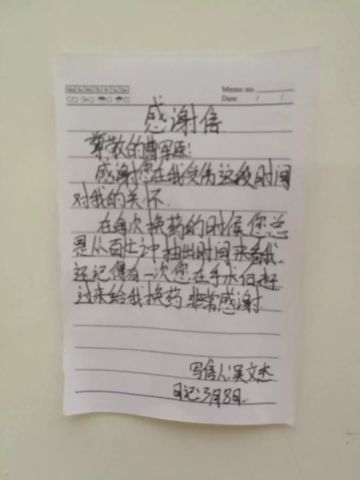 Memo no.
Date / /
感谢信
尊敬的曹军医:
感谢您在我受伤这段时间
对我的关怀.
在每次换药的时候您总
是从百忙之中抽出时间来看我.
还记得有一次您在手术台赶
过来给我换药 非常感谢
写信人:吴文杰
日记:3月8日.